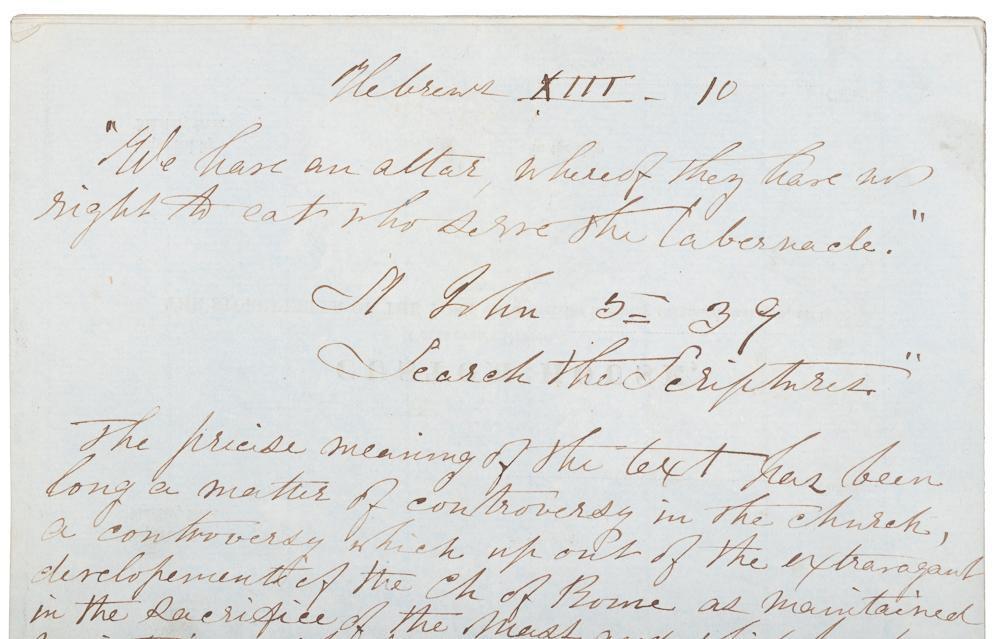 Hebrews XIII - 10
"We have an altar, whereof they have no
right to eat who serve the tabernacle."
St John 5 = 39
Search the Scriptures."
The precise meaning of the text has been
long a matter of controversy in the church,
a controversy which up out of the extravagant
developements of the Ch of Rome as maintained
in the sacrifice of the Mass and